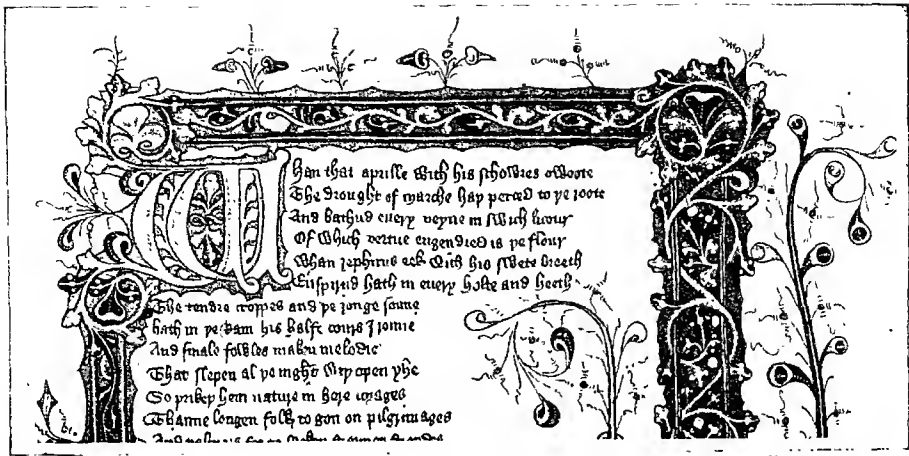 Whan that aprille with his schowres swoote
The drought of marche haþ perced to þe roote
And bathud euery veyne in swich licour
Of which vertue engendred is þe flour
Whan zephirus eek with his swete breeth
Enspirud hath in euery holte and heeth
The tendre croppes and þe ȝonge sonne
hath in þe Ram his halfe cours I ronne
And smale fowles maken melodie
That slepen al þe night wiþ open yhe
So prikeþ hem nature in here corages
Thanne longen folk to gon on pilgrimages